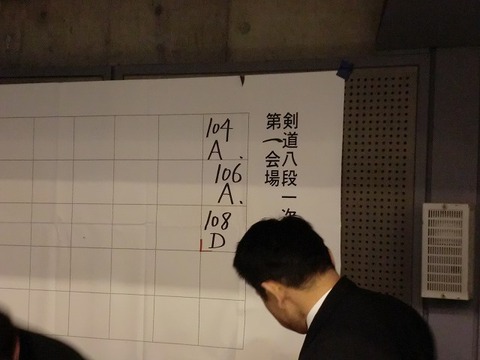 剣道八段一次
第一会場
104
A.
106
A.
108
D